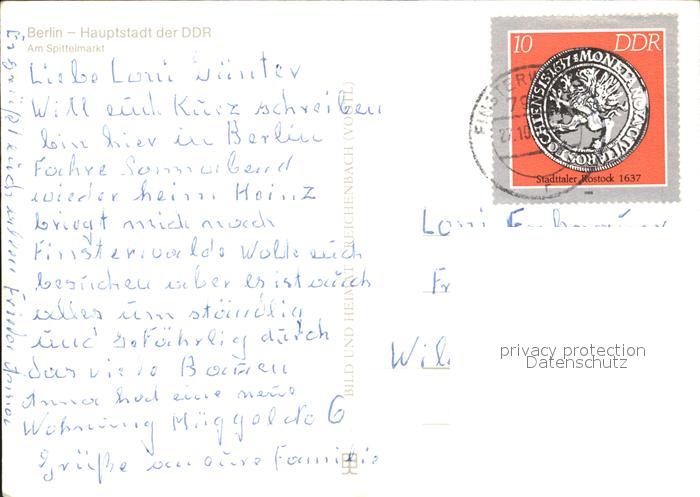 Berlin – Hauptstadt der DDR
Am Spittelmarkt
Liebe Loni Günter
Will euch Kurz schreiben
bin hier in Berlin
Fahre Sonnabend
wieder heim Heinz
bringt mich nach
Finsterwalde Wollte euch
besuchen aber es ist auch
alles um ständlig
und gefährlig durch
das viele Bauen
Anna had eine neue
Wohnung Müggelda 6
Grüße an eure Familie
BILD UND HEIMAT REICHENBACH (VOGTL)
10 DDR
MONETA NOVA
1637
Stadttaler Rostock 1637
FINSTERW
79
27.10
Loni
Fr
Wil
privacy protection
Datenschutz